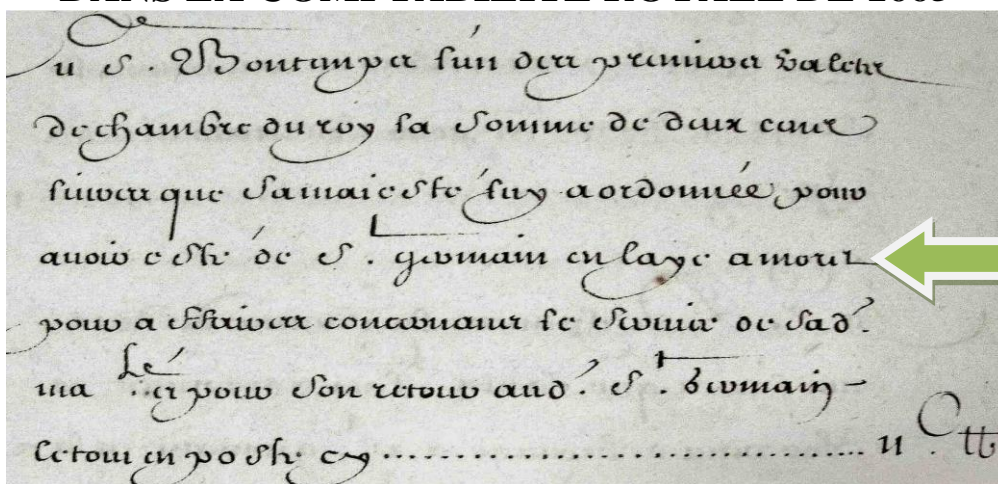 DANS LA COMPTABILITE ROYALE DE
Au S. Bontemps l'un des premiers valets
de chambre du roy la somme de deux cens
livres que sa maiesté luy a ordonnée pour
avoir esté de St germain en laye a moret
pour affaires concernant le service de sad.
maté et pour son retour aud. St Germain
le tout en poste cy .............................. IIC tt